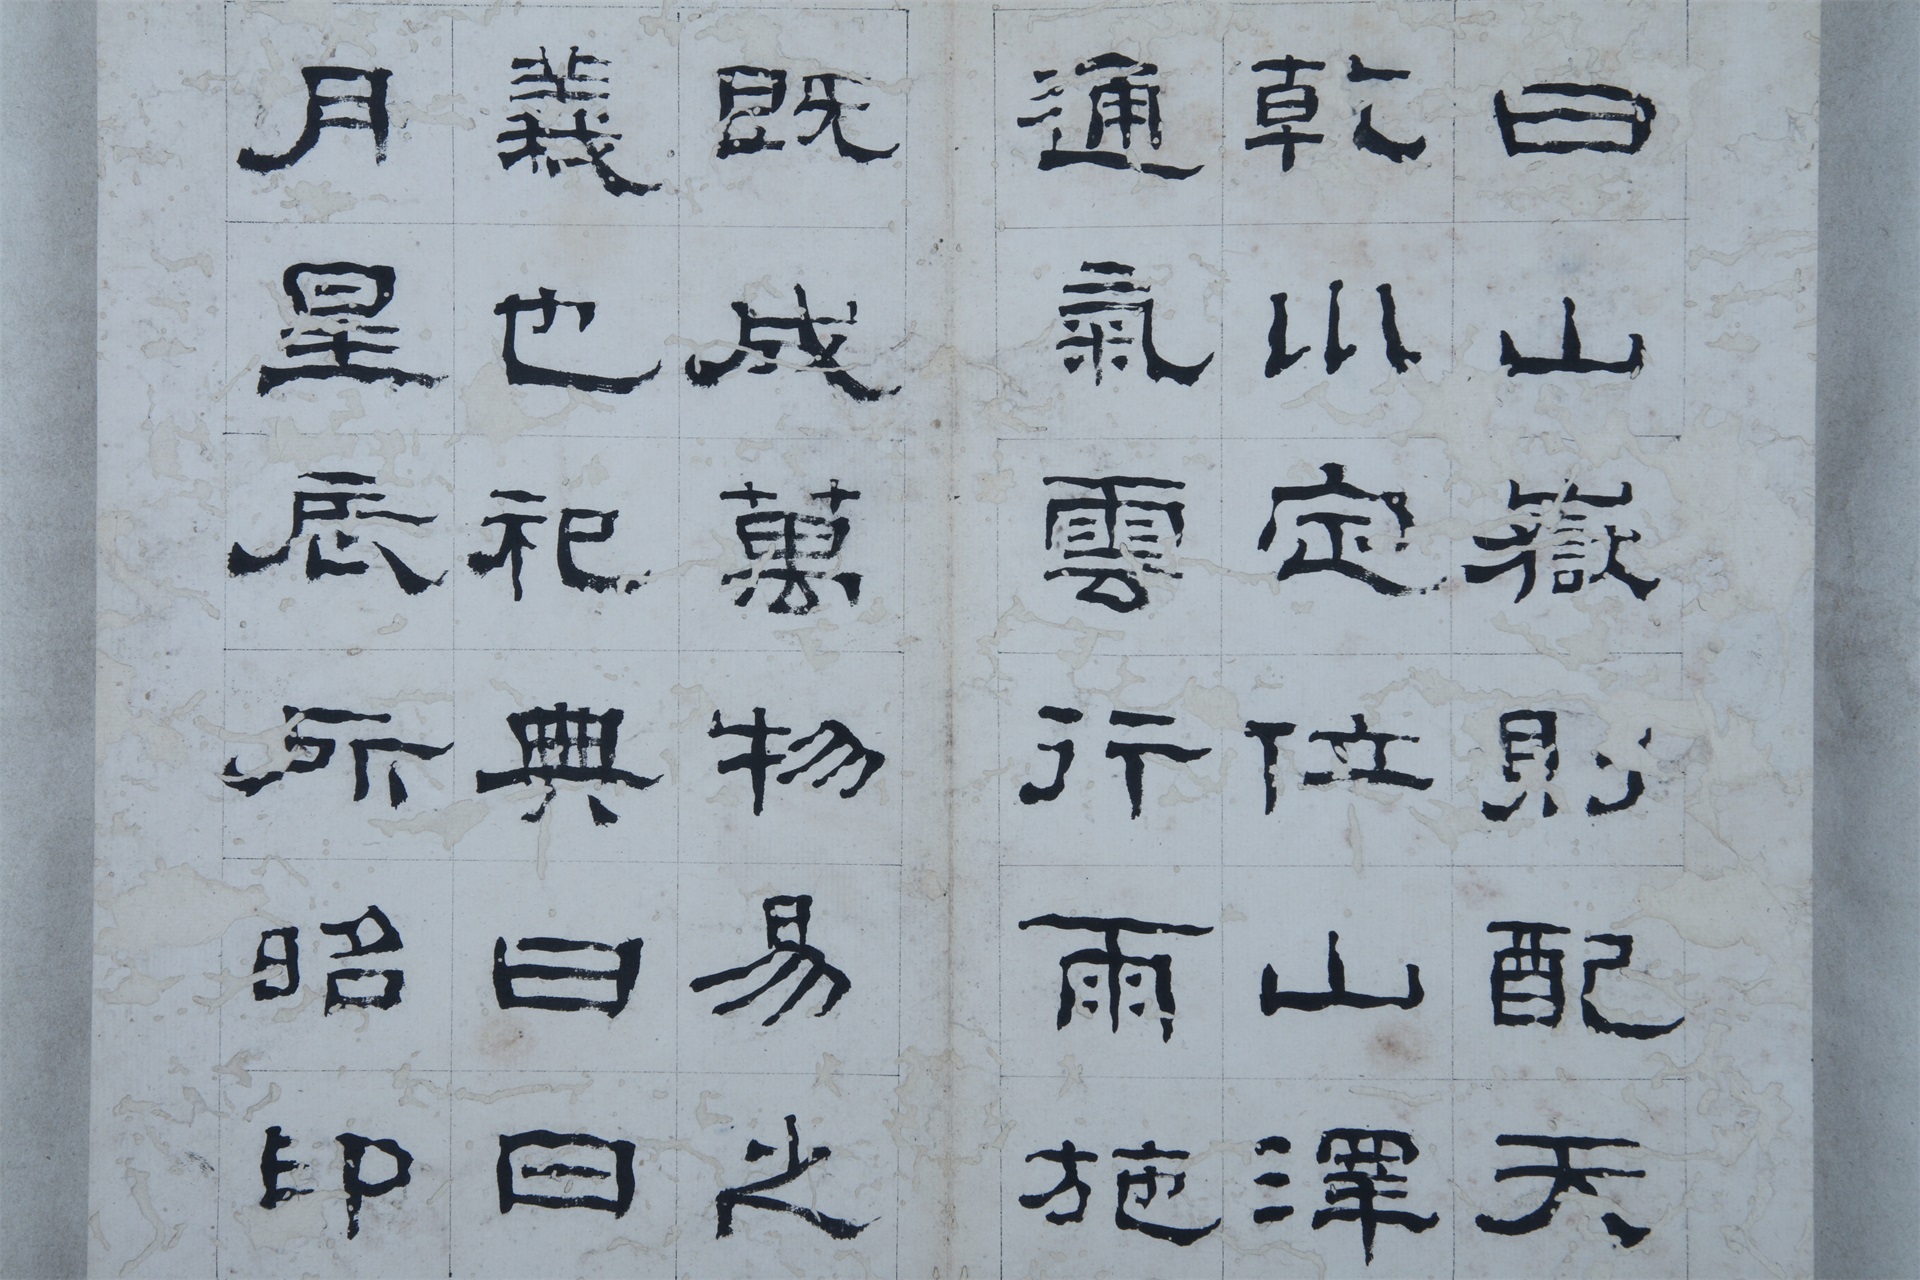 曰山嶽則配天
乾川定位山澤
通氣雲行雨施
既成萬物易之
義也祀典曰日
月星辰所昭卬